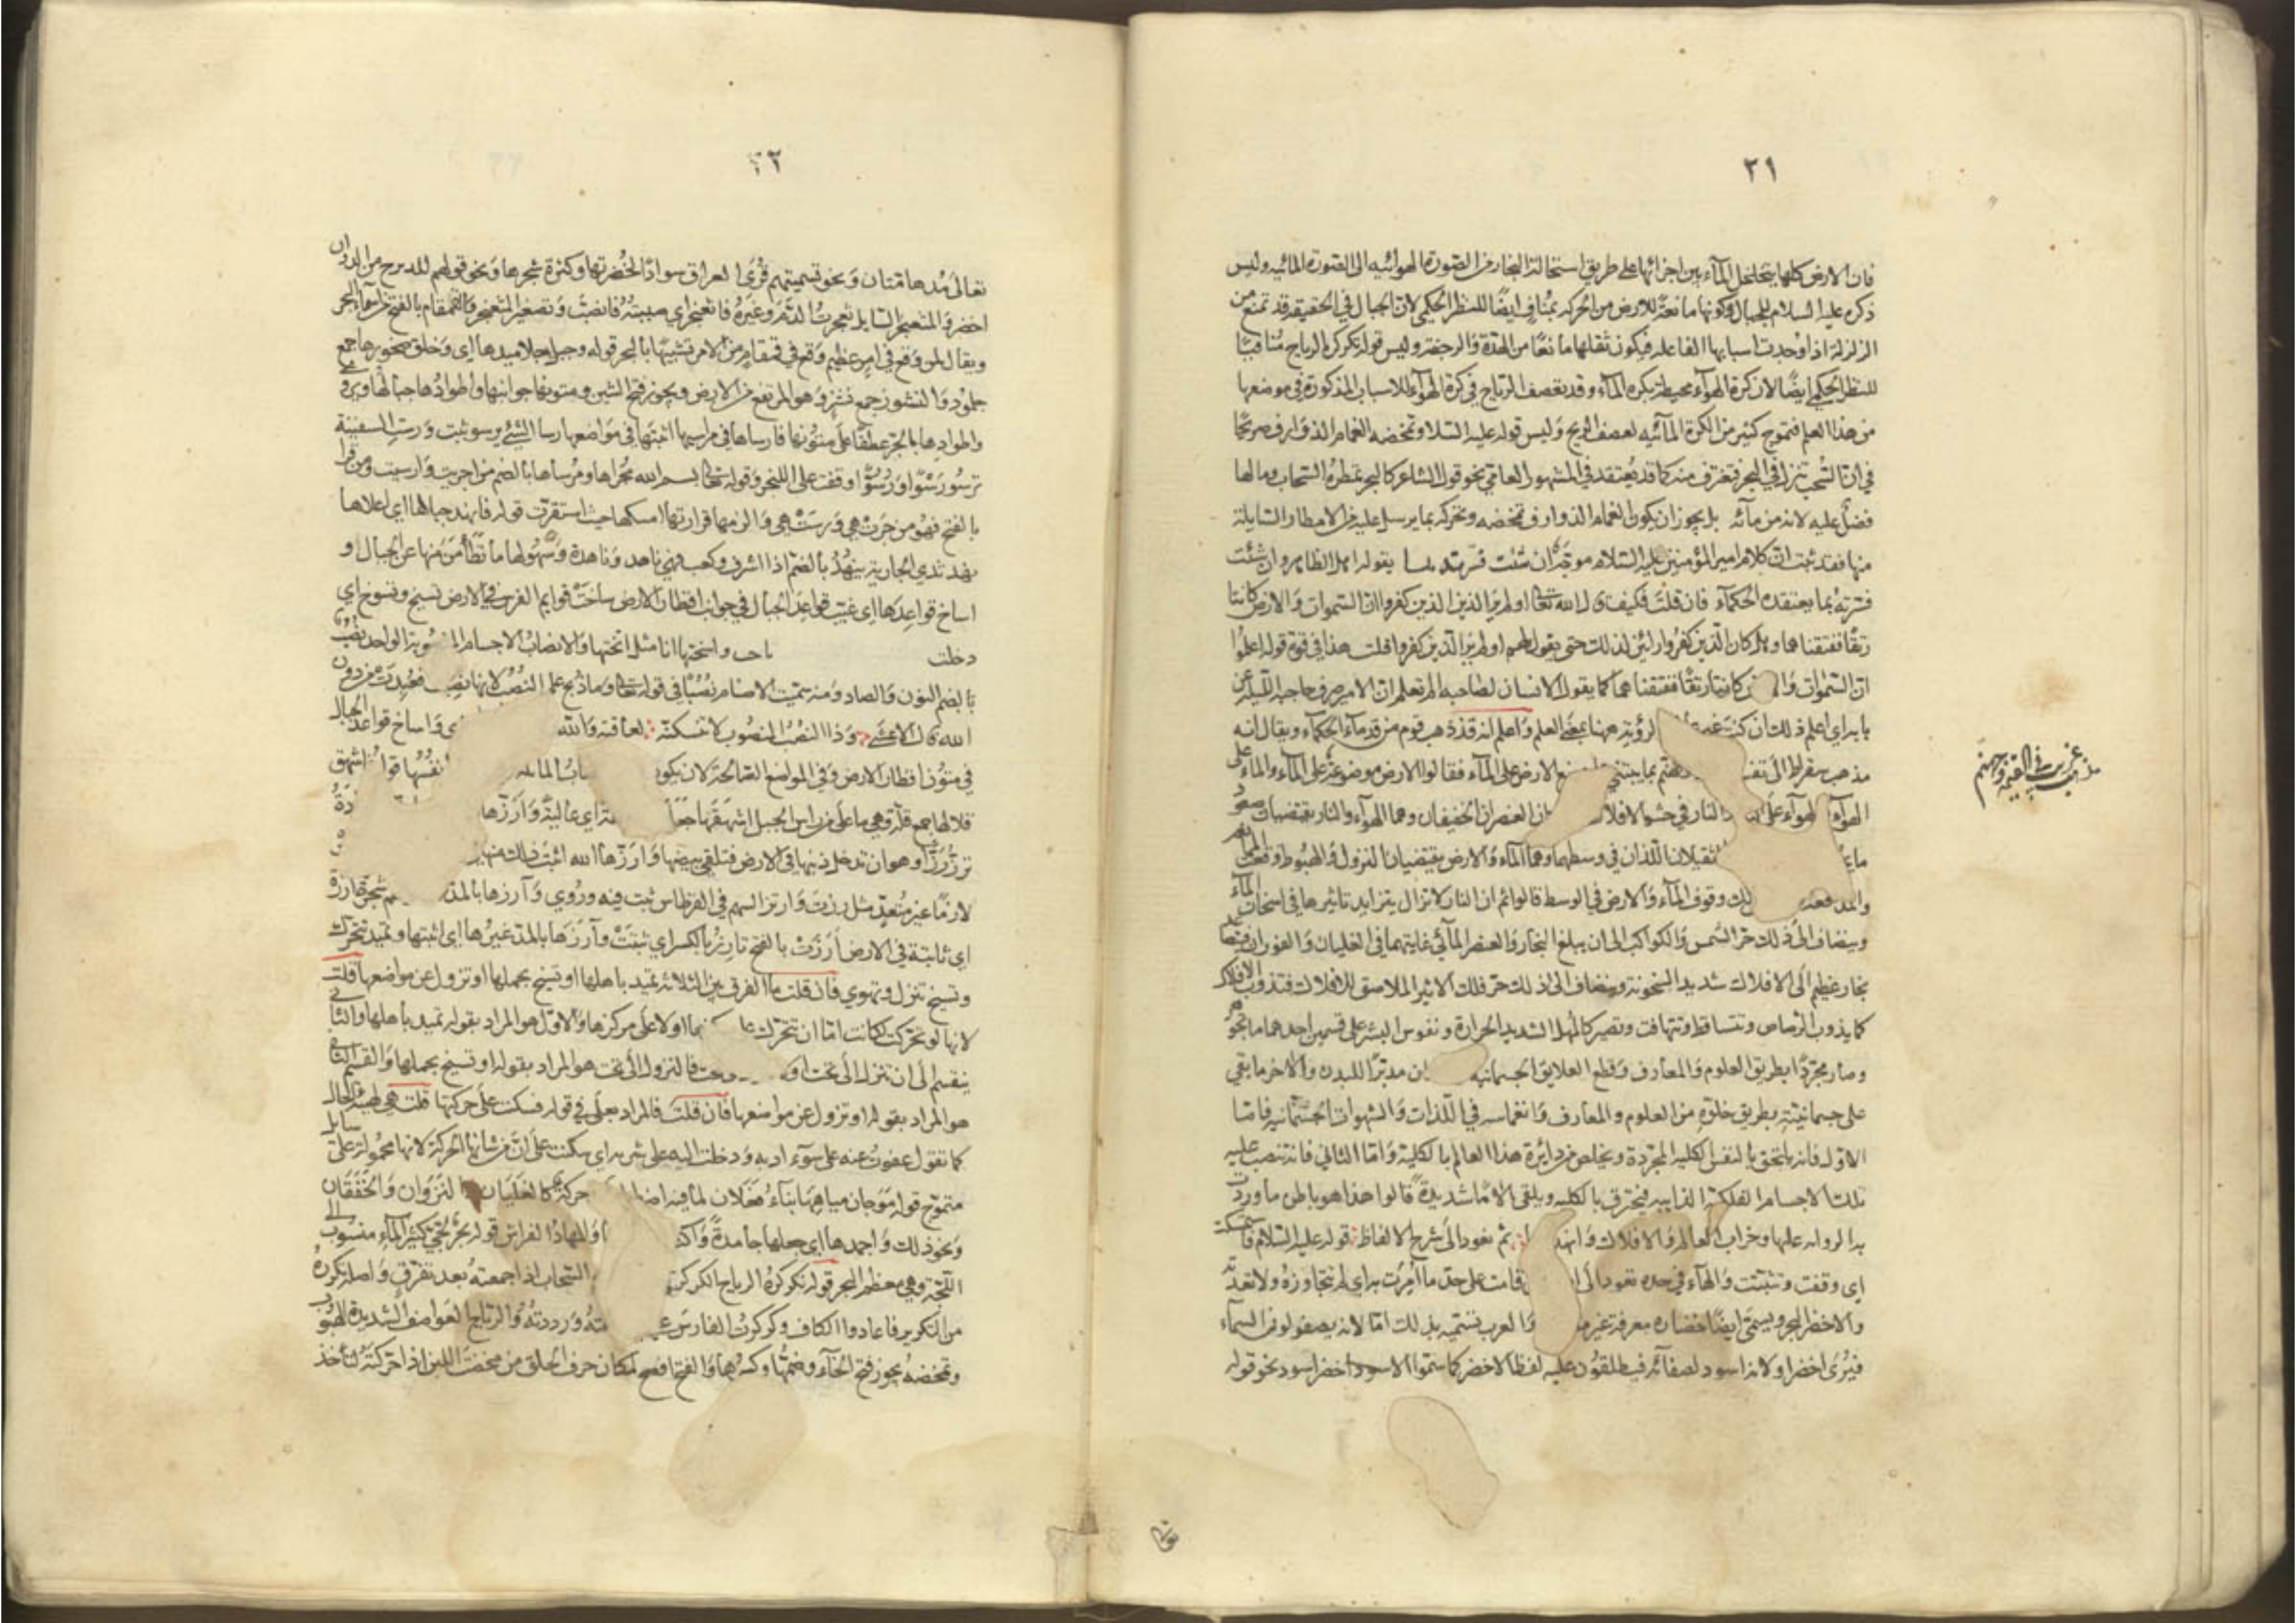 ٢١
فان الارض كلها يتخلخل الماء بين اجزائها على طريق استحالة البخار من الصورة الهوائيه الى الصورة المائيه وليس
ذكره عليه السلام للجبال وكونها مانعة للارض من الحركة بمناف ايضا للنظر الحكمي لان الجبال في الحقيقه قد تمنع من
الزلزلة اذا وجدت اسبابها الفاعله فيكون ثقلها مانعا من الهدة والرجفة وليس قوله تكركره الرياح منافيا
للنظر الحكمي ايضا لان كرة الهواء محيطة بكره الماء وقد تعصف الرياح في كرة الهواء للاسباب المذكورة في موضعها
من هذا العلم فتموج كثير من الكرة المائيه لعصف الريح وليس قوله عليه السلام وتمخضه الغمام الذوارف صريحا
في ان السحب تنزل في البحر فتغترف منه كما قد يعتقد في المشهور العامي نحو قول الشاعر كالبحر تمطره السحاب وما لها
فضل عليه لانه من مائه بل يجوز ان يكون الغمام الذوارف تمخضه وتحركه بما يرسل عليه من الامطار السايلة
منها فقد ثبت ان كلام امير المؤمنين عليه السلام موجه ان شئت فسرته بما يقوله اهل الظاهر وان شئت
فسرته بما يعتقده الحكماء فان قلت فكيف قال الله تعالى اولم ير الذين كفروا ان السموات والارض كانتا
رتقا ففتقناهما وهل كان الذين كفروا رائين لذلك حتى يقول لهم اولم ير الذين كفروا قلت هذا في قوة قوله اعلموا
ان السموات كانتا رتقا ففتقناهما كما يقول الانسان لصاحبه الم تعلم ان الامير صرف حاجبه الليلة عن
بابه اي اعلم ذلك ان كنت لرؤية ههنا بمعنى العلم واعلم انه قد ذهب قوم من قدماء الحكماء ويقال انه
مذهب سقراط الى بما يبتني الارض على الماء فقالوا الارض موضوعة على الماء والماء على
الهواء والهواء على النار في حشو الافلاك ان العنصران الخفيفان وهما الهواء والنار يقتضيان صعود
الثقيلان اللذان في وسطهما وهما الماء والارض يقتضيان النزول والهبوط وقعت
والمدافعة وقوف الماء والارض في الوسط قالوا ثم ان النار لا تزال يتزايد تاثيرها في اسخان الماء
وينضاف الى ذلك حر الشمس والكواكب الى ان يبلغ البخار والعنصر المائي غايتهما في الغليان والفوران
بخار عظيم الى الافلاك شديد السخونة وينضاف الى ذلك حر فلك الاثير الملاصق للافلاك فتذوب الافلاك
كما يذوب الرصاص وتتساقط وتتهافت وتصير كالمهل الشديد الحرارة ونفوس البشر على قسمين احدهما ما تجوهر
وصار مجردا بطريق العلوم والمعارف وقطع العلايق الجسمانية مدبرا للبدن والاخر ما بقي
على جسمانيته بطريق خلوه من العلوم والمعارف وانغماسه في اللذات والشهوات الجسمانية فاما
الاول فانه يلتحق بالنفس الكلية المجردة ويخلص من دايرة هذا العالم بالكلية واما الثاني فانه تنصب عليه
تلك الاجسام الفلكية الذايبه فيحترق بالكليه ويلقى الاما شديدة قالوا هذا هو باطن ما وردت
به الروايه عليها وخراب العالم والافلاك ثم نعود الى شرح الالفاظ قوله عليه السلام فاستمسكت
اي وقفت وتثبتت والهاء في حده تعود الى قامت على حد ما امرت به اي لم تتجاوزه ولا تعدته
والاخضر البحر ويسمى ايضا خضارة معرفة غير والعرب تسميه بذلك اما لانه يصف لون السماء
فيرى اخضر او لانه اسود لصفائه فيطلقون عليه لفظ الاخضر كما سموا الاسود اخضر اسود نحو قوله
مذهب غريب في القيمة وجهنم
٢٢
تعالى مدهامتان ونحو تسميتهم قرى العراق سوادا لخضرتها وكثرة شجرها ونحو قولهم للديزج من الدواب
اخضر والمثعنجر السايل ثعجرت الدم وغيره فاثعنجر اي صببته فانصب وتصغير المثعنجر والقمقام بالفتح من اسماء البحر
ويقال لمن وقع في امر عظيم وقع في قمقام من الامر تشبيها بالبحر قوله وجبل جلاميدها اي وخلق صخورها جمع
جلمود والنشوز جمع نشز وهو المرتفع من الارض ويجوز فتح الشين ومتونها جوانبها واطوادها جبالها ويروى
واطوادها بالجر عطفا على متونها فارساها في مراسيها اثبتها في مواضعها رسا الشيء يرسو ثبت ورست السفينة
ترسو رسوا ورسوا وقفت على اللنجر وقوله تعالى بسم الله مجراها ومرساها بالضم من اجريت وارسيت ومن قرا
بالفتح فهو من جرت هي ورست هي والزمها قرارتها امسكها حيث استقرت قوله فانهد جبالها اي اعلاها
نهد ثدي الجارية ينهد بالضم اذا اشرف وكعب فهي ناهد وناهدة وسهولها ما تطامن منها عن الجبال و
اساخ قواعدها اي غيب قواعد الجبال في جوانب اقطار الارض ساخت قوايم الفرس في الارض تسيخ وتسوخ اي
دخلت واسختها انا مثل اثختها والانصاب الاجسام المنصوبة الواحد نصب
بالضم النون والصاد ومنه سميت الاصنام نصبا في قوله تعالى وما ذبح على النصب لانها نصبت فعبدت من دون
الله قال الاعشى وذا النصب المنصوب لا تنسكنه لعاقبة والله واساخ قواعد الجبال
في متون اقطار الارض وفي المواضع الصالحة لان يكون
قلالها جمع قلة وهي ما علا من راس الجبل اشهقها جعلها اي عالية وارزها
ترز رزا وهو ان تدخل ذنبها في الارض فتلقي بيضها وارزها الله اثبت ذلك منها
لازما غير متعد مثل رزت وارتز السهم في القرطاس ثبت فيه وروي وآرزها بالمد شجرة ارزة
اي ثابتة في الارض ارزت بالفتح تارز بالكسر اي ثبتت وآرزها بالمد غيرها اي اثبتها وتميد تتحرك
وتسيخ تنزل وتهوي فان قلت ما الفرق بين الثلاثة تميد باهلها او تسيخ بحملها او تزول عن مواضعها قلت
لانها لو تحركت لكانت اما ان تتحرك على او لا على مركزها والاول هو المراد بقوله تميد باهلها والثاني
ينقسم الى ان تنزل الى تحت او تحت فالنزول الى تحت هو المراد بقوله او تسيخ بحملها والقسم الثاني
هو المراد بقوله او تزول عن مواضعها فان قلت فالمراد بعلى في قوله فسكنت على حركتها قلت هي لهيئة الحال
كما تقول عفوت عنه على سوء ادبه ودخلت اليه على شربه اي سكنت على ان من شانها الحركة لانها محمولة على سايل
متموج قوله موجان مياهها بناء فعلان لما فيه اضطراب حركة كالغليان والنزوان والخفقان
ونحو ذلك واجمدها اي جعلها جامدة والمهاد الفراش قوله بحر لجي كثير الماء منسوب الى
اللجة وهي معظم البحر قوله تكركره الرياح الكركرة السحاب اذا جمعته بعد تفرق واصله تكرره
من التكرير فاعادوا الكاف وكركرت الفارس ورددته والرياح العواصف الشديدة الهبوب
وتمخضه يجوز فتح الخاء وضمها وكسرها والفتح افصح لمكان حرف الحلق من مخضت اللبن اذا حركته لتاخذ